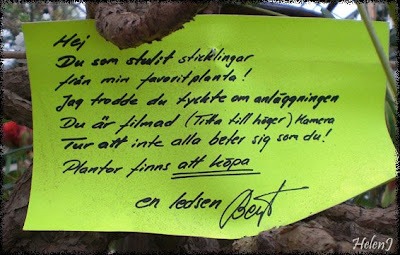 Hej
Du som stulit sticklingar
från min favoritplanta!
Jag trodde du tyckte om anläggningen
Du är filmad (Titta till höger) Kamera
Tur att inte alla beter sig som du!
Plantor finns att köpa
en ledsen Bengt
HelenJ